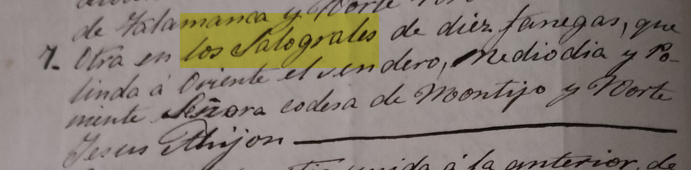 de Salamanca y Norte
7. Otra en los Salograles de diéz fanegas, que
linda á Oriente el sendero, Mediodia y Po-
niente Señora codesa de Montijo y Norte
Jesus Thijon
unida á la anterior, de